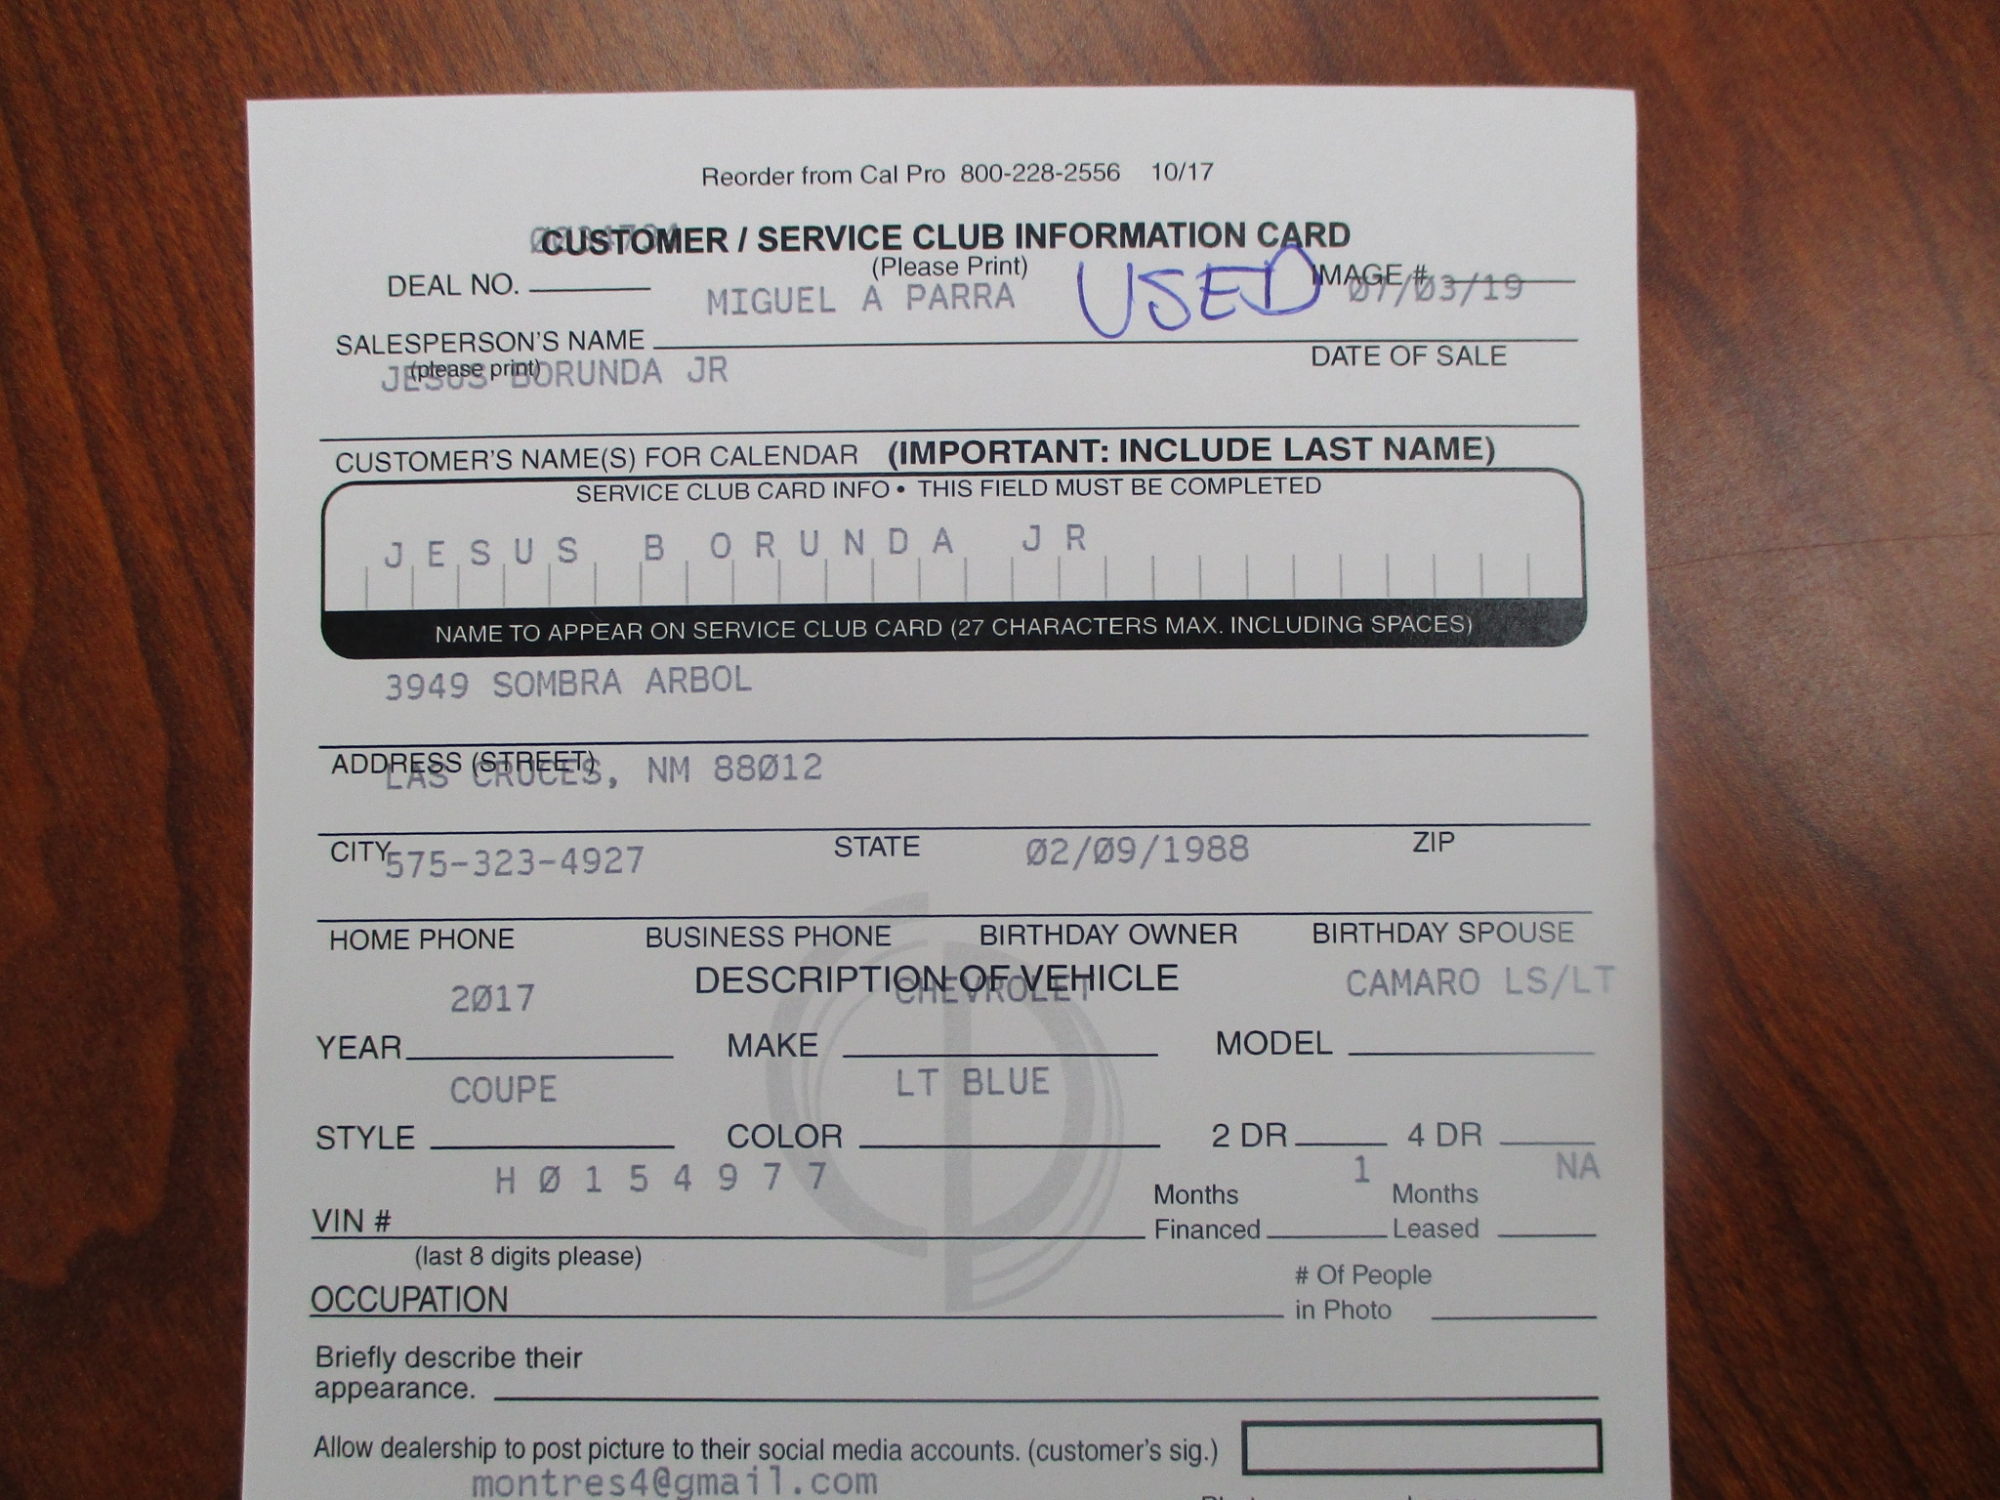 Reorder from Cal Pro 800-228-2556 10/17
CUSTOMER / SERVICE CLUB INFORMATION CARD
(Please Print)
DEAL NO.
IMAGE #
07/03/19
MIGUEL A PARRA
USED
SALESPERSON'S NAME
(please print)
DATE OF SALE
JESUS BORUNDA JR
CUSTOMER'S NAME(S) FOR CALENDAR (IMPORTANT: INCLUDE LAST NAME)
SERVICE CLUB CARD INFO • THIS FIELD MUST BE COMPLETED
JESUS BORUNDA JR
NAME TO APPEAR ON SERVICE CLUB CARD (27 CHARACTERS MAX. INCLUDING SPACES)
3949 SOMBRA ARBOL
ADDRESS (STREET)
LAS CRUCES, NM 88012
CITY STATE ZIP
575-323-4927 02/09/1988
HOME PHONE BUSINESS PHONE BIRTHDAY OWNER BIRTHDAY SPOUSE
DESCRIPTION OF VEHICLE
2017 CHEVROLET CAMARO LS/LT
YEAR MAKE MODEL
COUPE LT BLUE
STYLE COLOR 2 DR 4 DR
H0154977 1 NA
VIN # Months Financed Months Leased
(last 8 digits please)
OCCUPATION # Of People in Photo
Briefly describe their
appearance.
Allow dealership to post picture to their social media accounts. (customer's sig.)
montres4@gmail.com